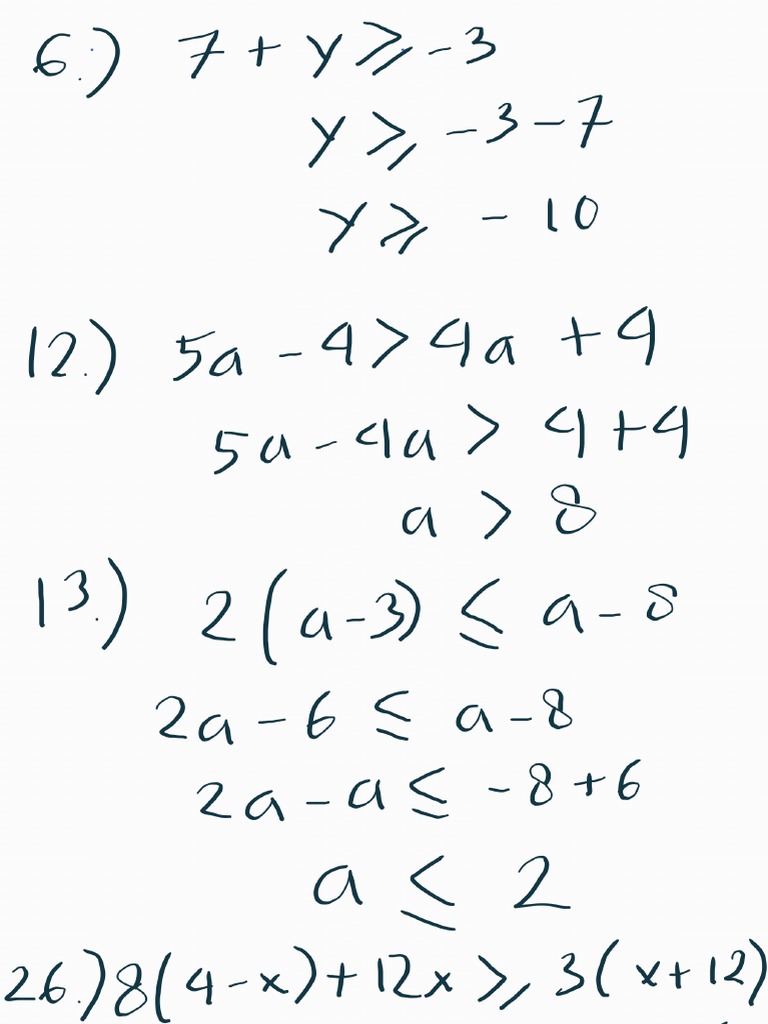 6.) 7 + y ⩾ -3
y ⩾ -3 - 7
y ⩾ - 10
12.) 5a - 4 > 4a + 4
5a - 4a > 4 + 4
a > 8
13.) 2(a-3) ≤ a - 8
2a - 6 ≤ a - 8
2a - a ≤ -8 + 6
a ≤ 2
26.) 8(4-x) + 12x ⩾ 3(x+12)